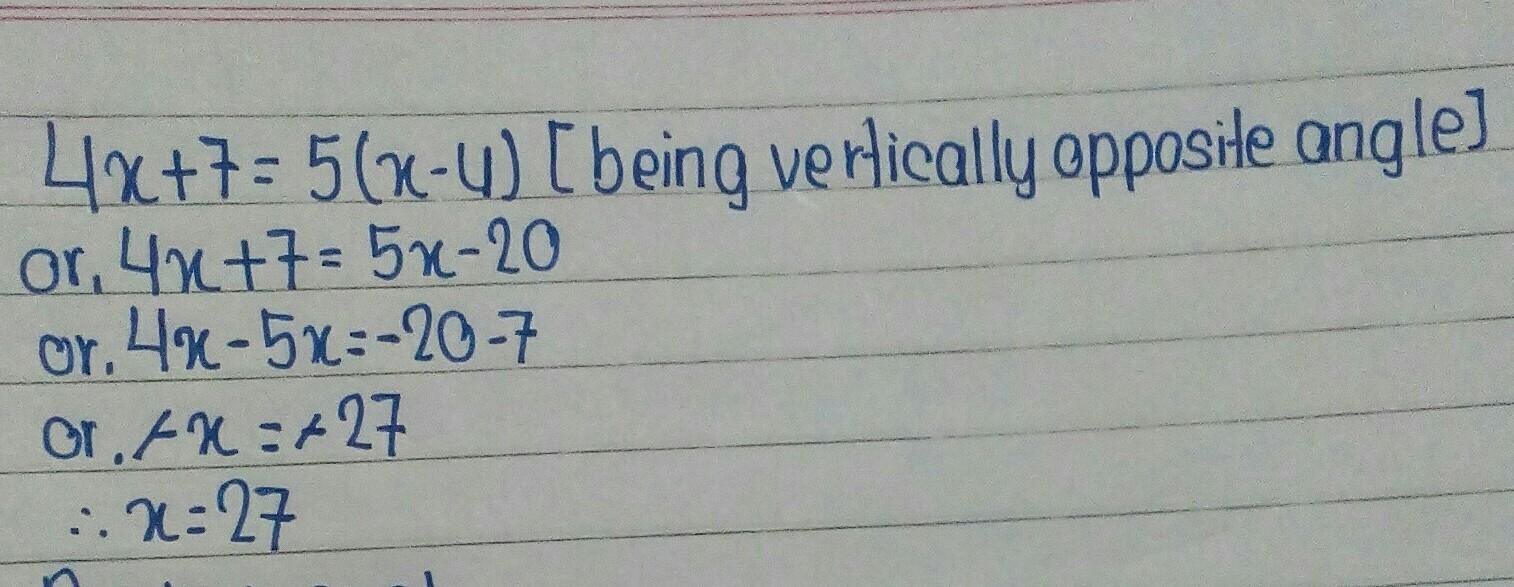 4x+7=5(x-4) [being vertically opposite angle]
or, 4x+7=5x-20
or. 4x-5x=-20-7
or. -x=-27
∴ x=27